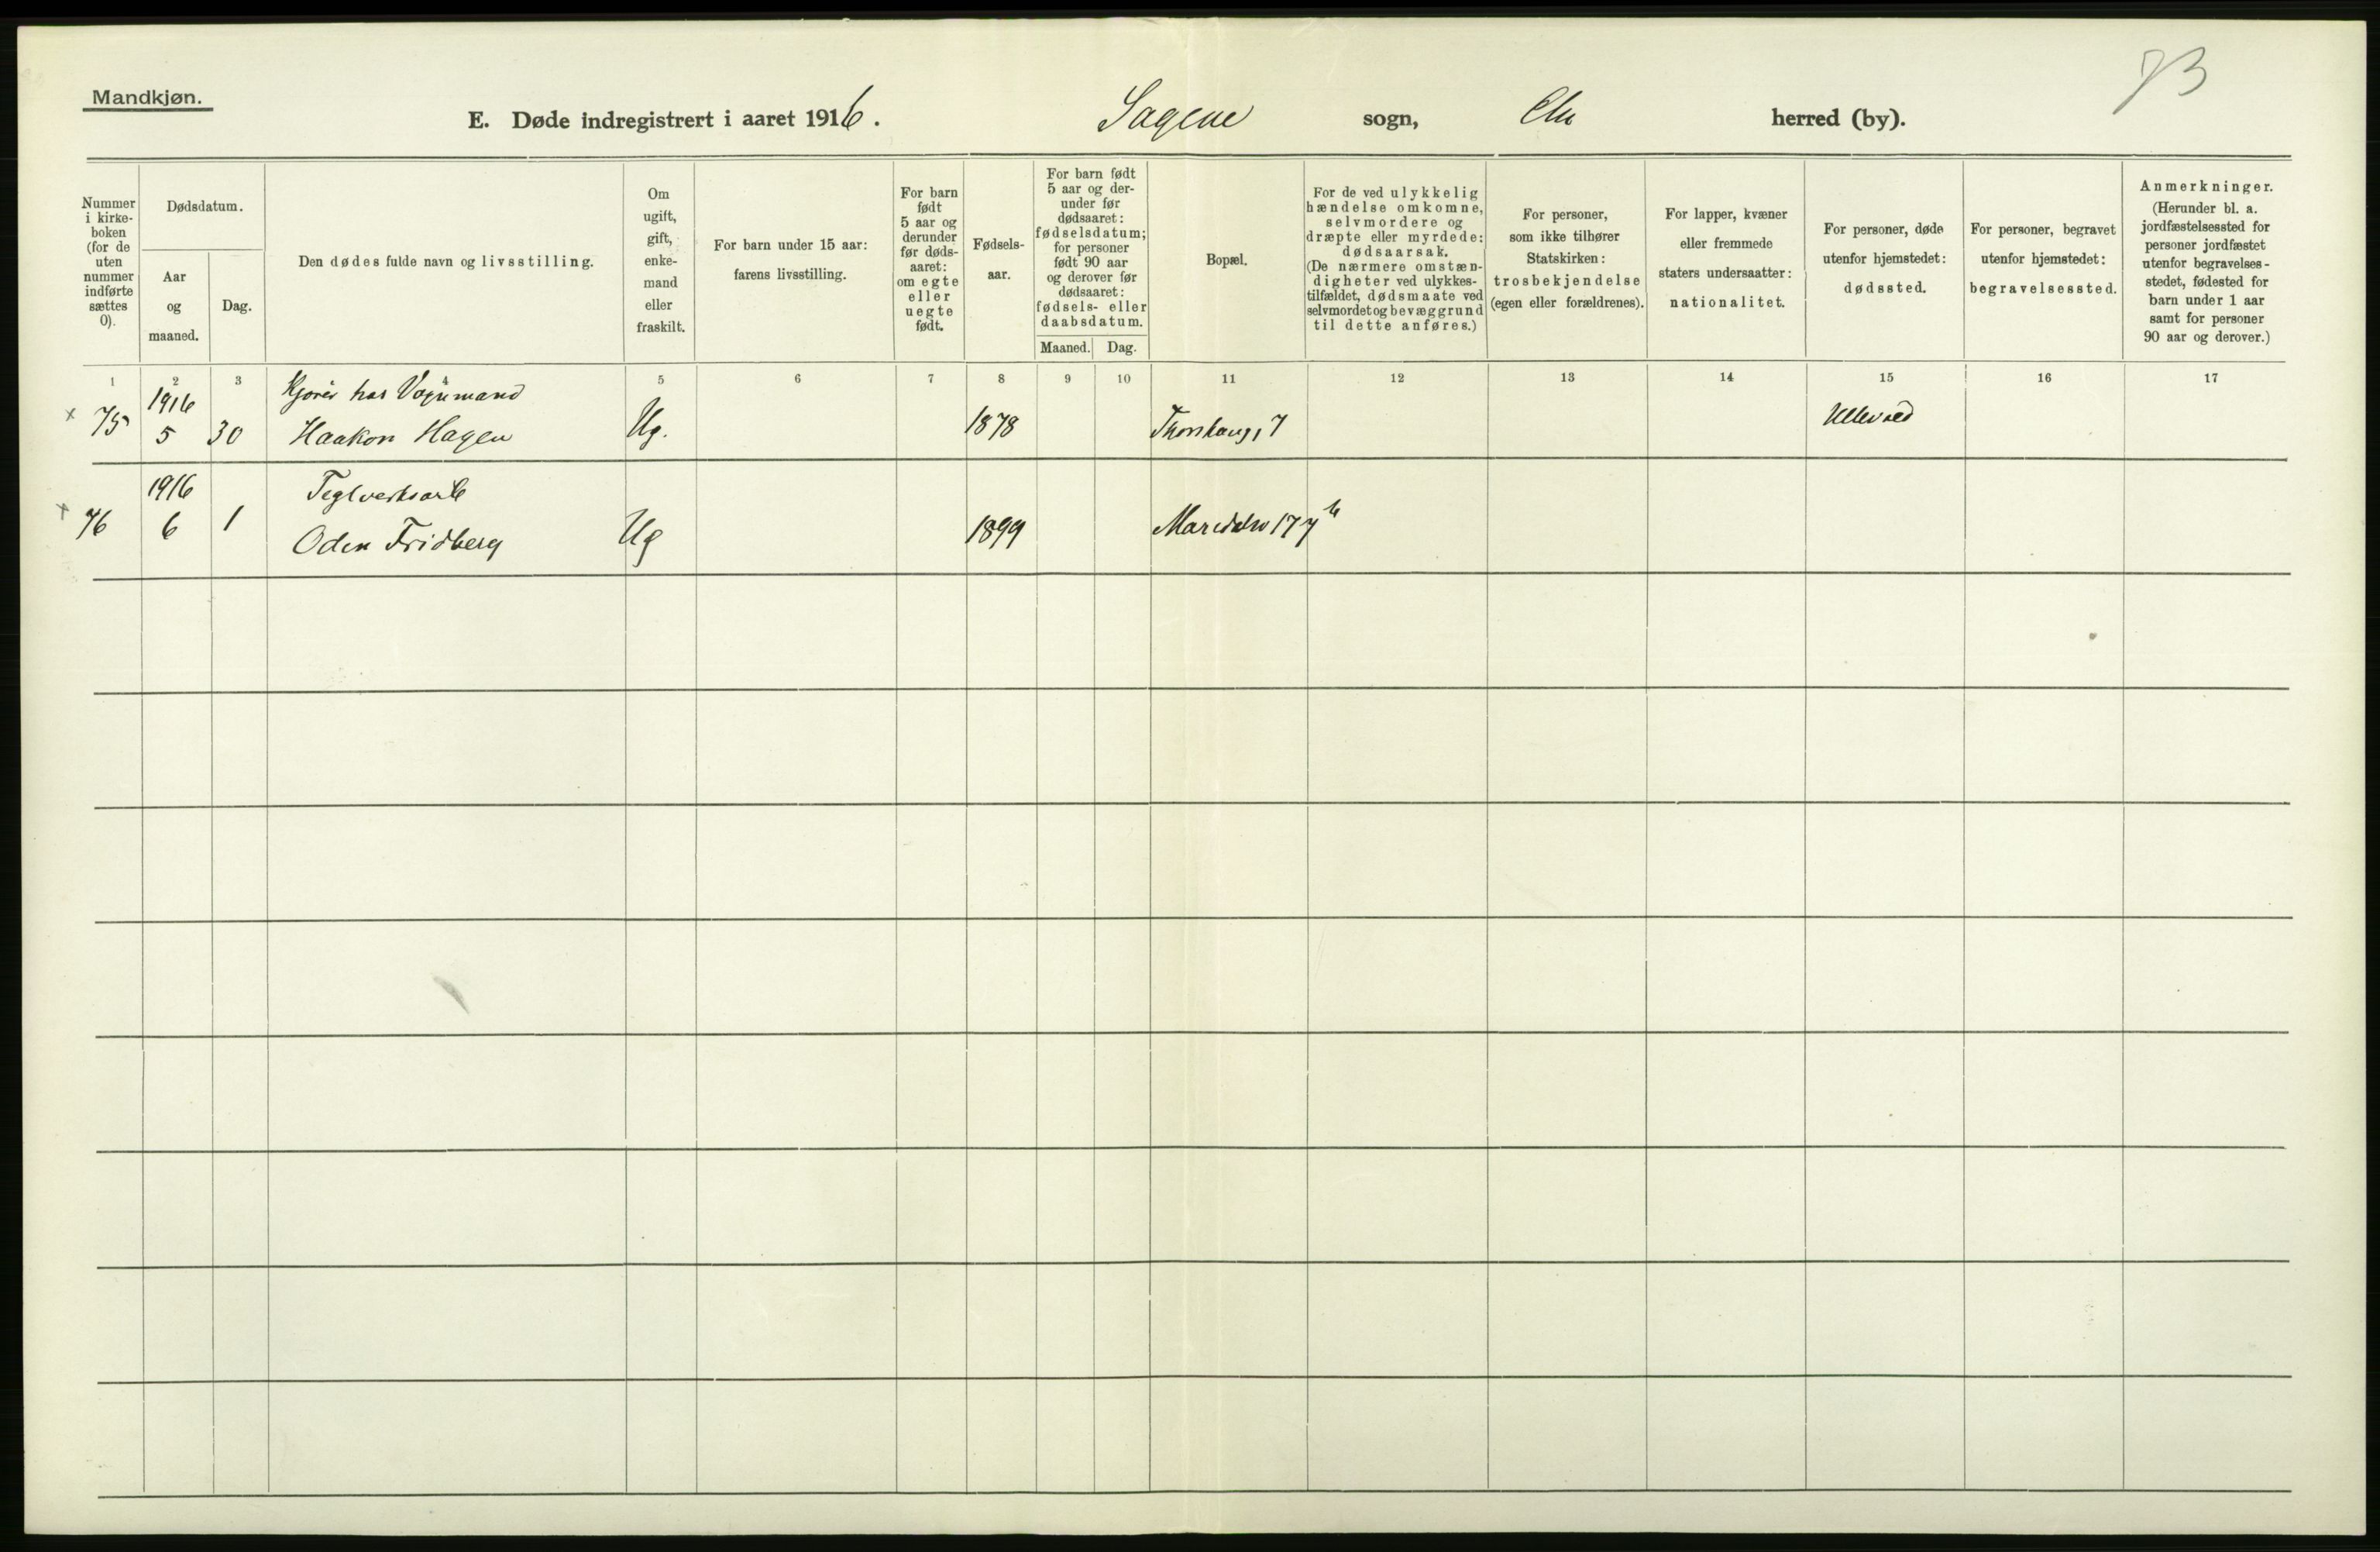 73
Mandkjøn.
E. Døde indregistrert i aaret 1916. Sagene sogn, Chr herred (by).
Nummer
i kirke-
boken
(for de
uten
nummer
indførte
sættes
0).
Dødsdatum.
Aar
og
maaned.
Dag.
Den dødes fulde navn og livsstilling.
Om
ugift,
gift,
enke-
mand
eller
fraskilt.
For barn under 15 aar:
farens livsstilling.
For barn
født
5 aar og
derunder
før døds-
aaret:
om egte
eller
uegte
født.
Fødsels-
aar.
For barn født
5 aar og der-
under før
dødsaaret:
fødselsdatum;
for personer
født 90 aar
og derover før
dødsaaret:
fødsels- eller
daabsdatum.
Maaned. Dag.
Bopæl.
For de ved ulykkelig
hændelse omkomne,
selvmordere og
dræpte eller myrdede:
dødsaarsak.
(De nærmere omstæn-
digheter ved ulykkes-
tilfældet, dødsmaate ved
selvmordet og bevæggrund
til dette anføres.)
For personer,
som ikke tilhører
Statskirken:
trosbekjendelse
(egen eller forældrenes).
For lapper, kvæner
eller fremmede
staters undersaatter:
nationalitet.
For personer, døde
utenfor hjemstedet:
dødssted.
For personer, begravet
utenfor hjemstedet:
begravelsessted.
Anmerkninger.
(Herunder bl. a.
jordfæstelsessted for
personer jordfæstet
utenfor begravelses-
stedet, fødested for
barn under 1 aar
samt for personer
90 aar og derover.)
1 2 3 4 5 6 7 8 9 10 11 12 13 14 15 16 17
1916 Kjører hos Vognmand
x 75 5 30 Haakon Hagen Ug. 1878 7 Ullevaal
1916 Teglverksarb
x 76 6 1 Oden Fridberg Ug 1899 Maridalsv 177 b